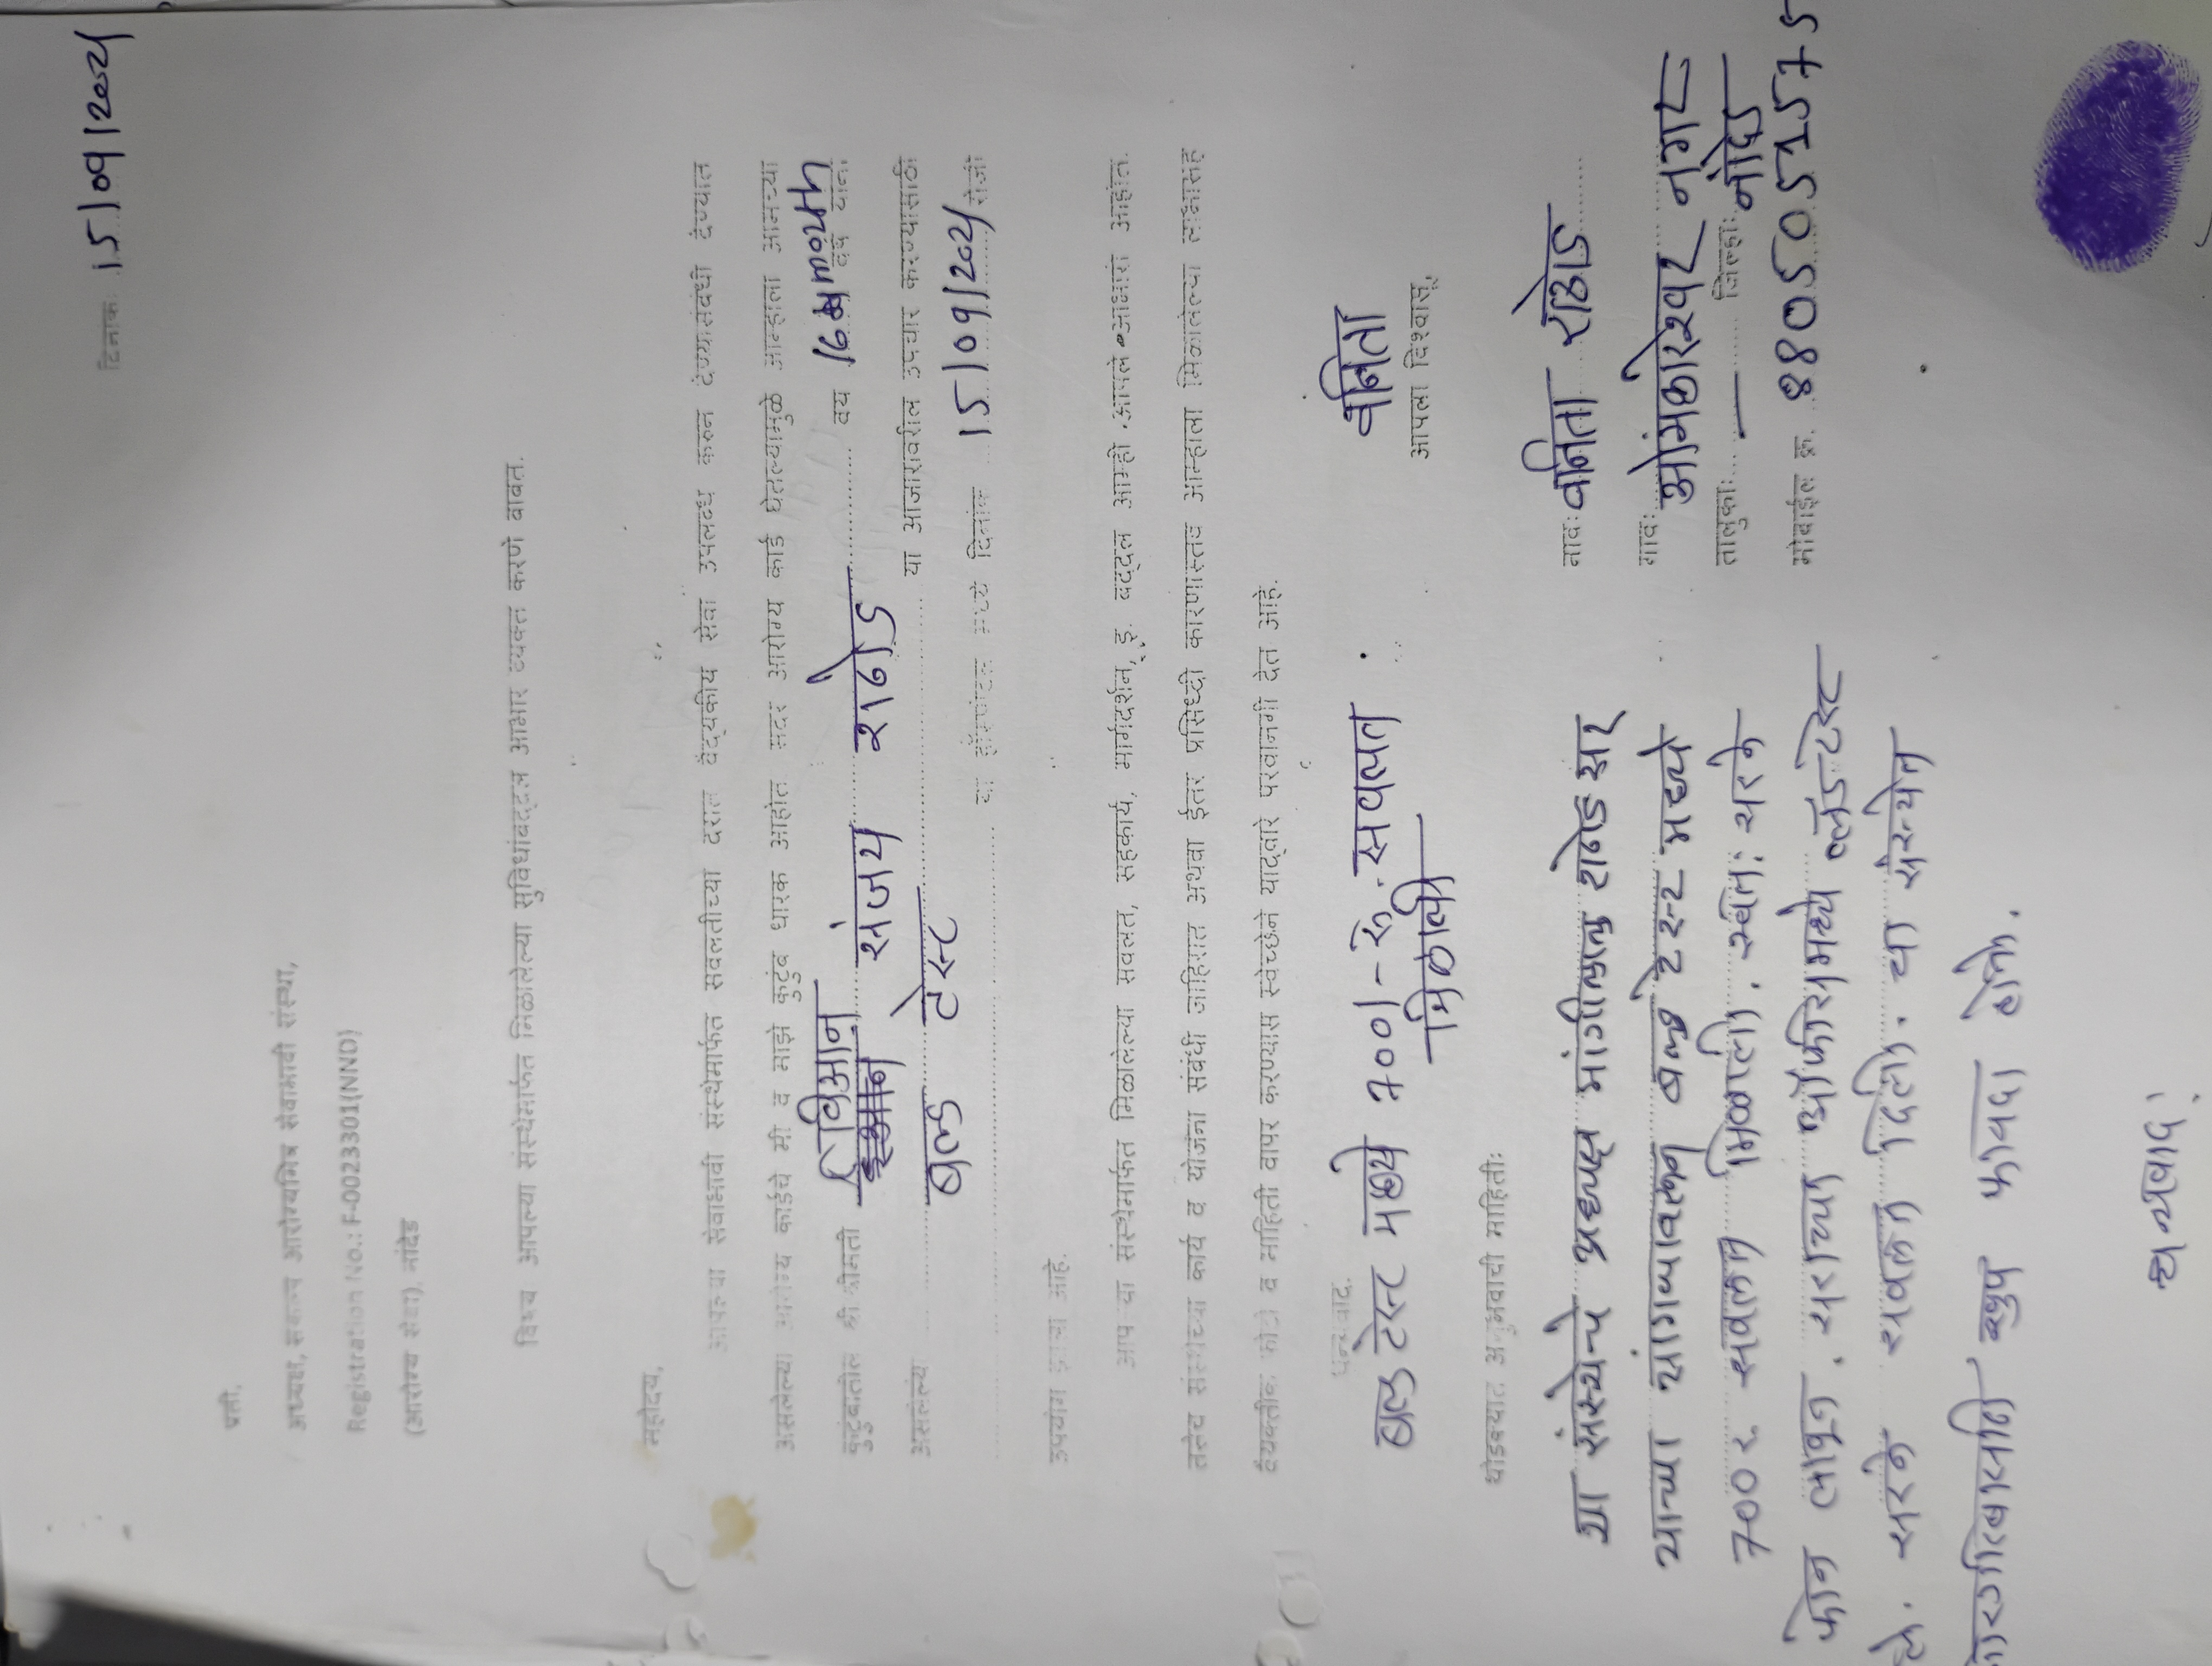 दिनांक: 15/09/2024
प्रती,
अध्यक्ष, सक्षम आरोग्यमित्र सेवाभावी संस्था,
Registration No.: F-0023301(NND)
(आरोग्य सेवा), नांदेड
विषय आपल्या संस्थेमार्फत मिळालेल्या सुविधांबद्दल आभार व्यक्त करणे बाबत.
महोदय,
आपल्या सेवाभावी संस्थेमार्फत सवलतीच्या दरात वैद्यकीय सेवा उपलब्ध करून देण्यासंबंधी देण्यात
असलेल्या आरोग्य कार्डचे मी व माझे कुटुंब धारक आहोत सदर आरोग्य कार्ड घेतल्यामुळे आम्हाला आमच्या
कुटुंबातील श्री श्रीमती विआन संजय राठोड वय 16 महिण्याचा वर्ष यांना
असलेल्या ब्लड टेस्ट या आजारावरील उपचार करण्यासाठी
या हॉस्पीटल मध्ये दिनांक 15/09/2024 रोजी
उपयोग झाला आहे.
आपल्या संस्थेमार्फत मिळालेल्या सवलत, सहकार्य, मार्गदर्शन, इ. बद्दल आम्ही आपले आभारी आहोत.
तसेच संस्थेच्या कार्य व योजना संबंधी जाहिरात अथवा ईतर प्रसिध्दी कारणास्तव आम्हाला मिळालेल्या लाभासह
वैयक्तीक फोटो व माहिती वापर करण्यास स्वेच्छेने याद्वारे परवानगी देत आहे.
धन्यवाद.
ब्लड टेस्ट मध्ये 700/- रु. सवलत
मिळाली
वनिता
आपला विश्वासू,
थोडक्यात अनुभवाची माहिती:
नाव: वनिता राठोड
गाव: ओंमकारेश्वर नगर
तालुका: — जिल्हा: नांदेड
मोबाईल क्र. 8805051575
या संस्थेचे अध्यक्ष मांगीलाल राठोड सर
यांच्या सांगण्यावरून ब्लड टेस्ट मध्ये
700 र सवलत मिळाली. स्वतः सरने
फोन लावून. सराच्या ऑफीसमध्ये ब्लडटेस्ट
ले. सरने सवलत दिली. या संस्थेत
गोरगरिबासाठी खुप फायदा होतो.
धन्यवाद!